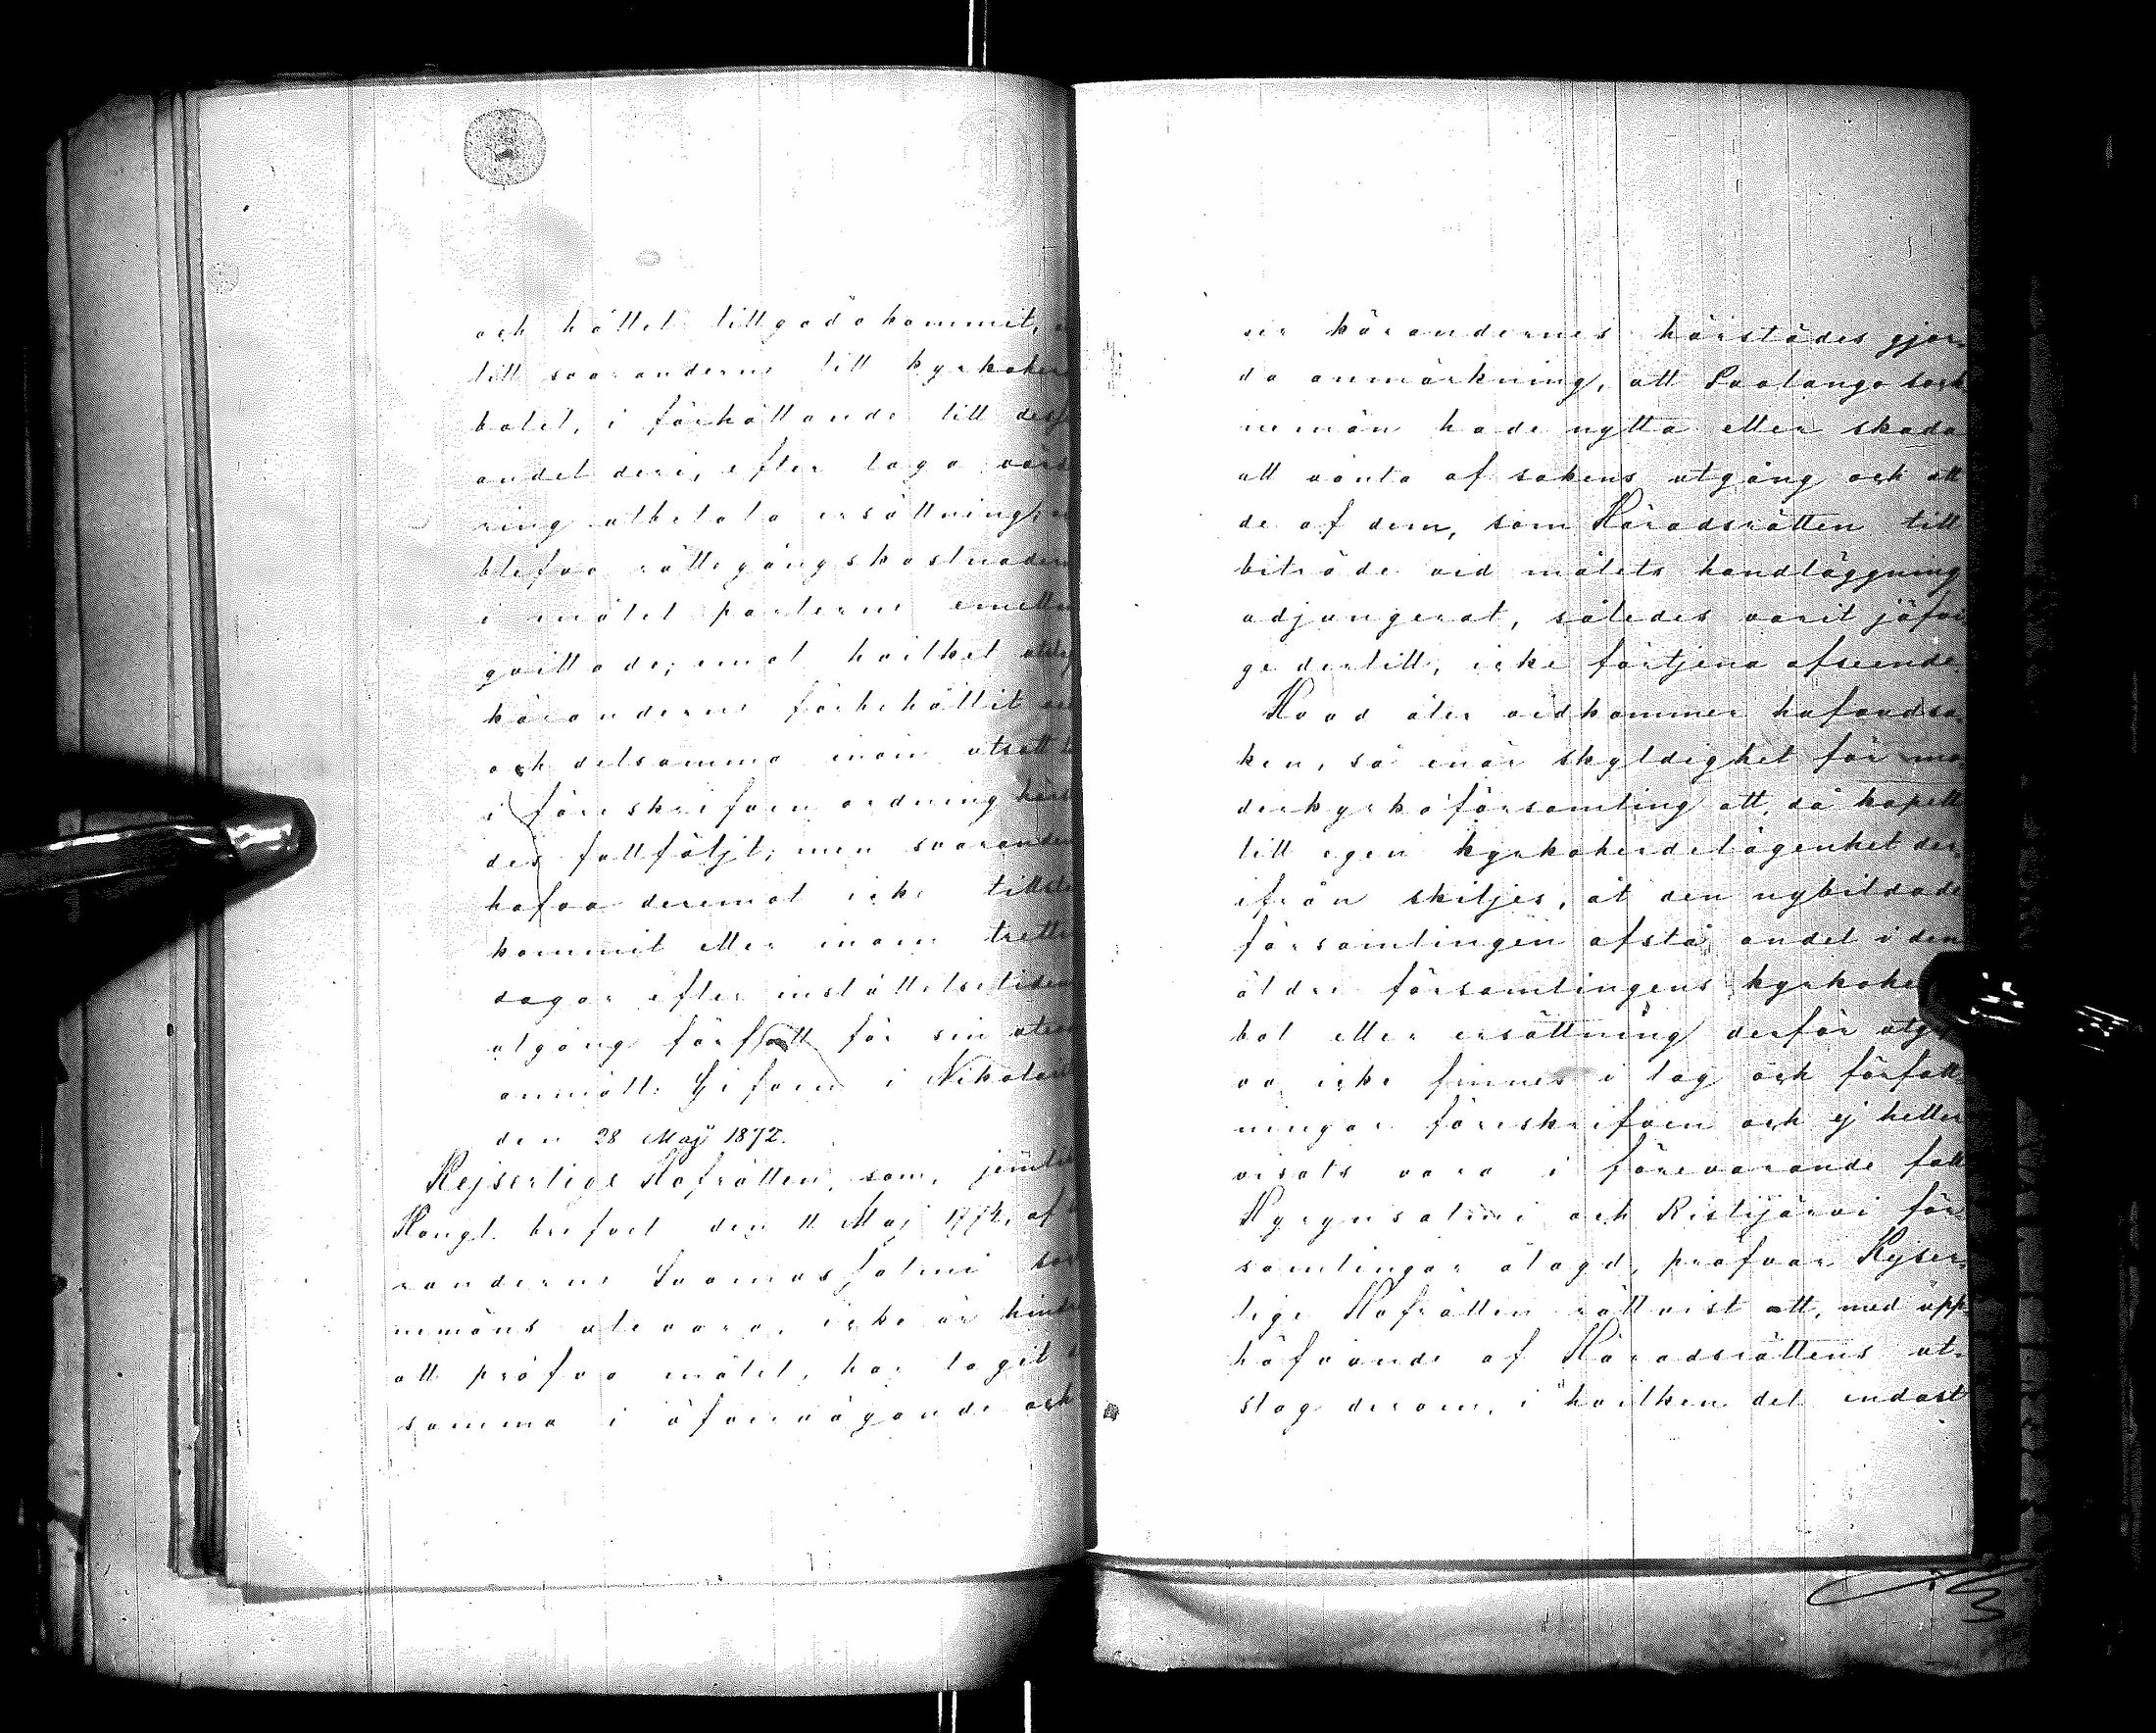 och hållet tillgodokommit,
till svaranderne till kyrkoher
bolet, i förhållande till dess
andel deri, efter laga värde
ring utbetala ersättning;
blefvo rättegångskostnaderne
i målet parterne emellan
qvittade; emot hvilket utslag
käranderne förbehållit
och detsamma inom utsatt
i föreskrifven ordning härstä
des fullföljt; men svarander
hafva deremot icke tillstä
kommit eller inom trettio
dagar efter inställelsetiden
utgång förfall för sin utevaro
anmält. Gifven i Nikolaist
den 28 Maj 1872.
Kejserlige Hofrätten, som, jemlikt
Kongl. brefvet den 11 Maj 1774, af
randerne Suomussalmi sock
nemäns utevaro, icke är hindra
att pröfva målet, har tagit
samma i öfvervägande och
ser kärandernes härstädes gjor-
da anmärkning, att Paalanga sock
nemän hade nytta eller skada
att vänta af sakens utgång och att
de af dem, som Häradsrätten till
biträde vid målets handläggning
adjungerat, således varit jäfvi
ge dertill, icke förtjena afseende.
Hvad åter vidkommer hufvudsa-
ken, så enär skyldighet för mo-
derkyrkoförsamling att, då kapell
till egen kyrkoherdelägenhet der-
ifrån skiljes, åt den nybildade
församlingen afstå andel i den
äldre församlingens kyrkoher
bol eller ersättning derför utgif
va icke finnes i lag och författ
ningar föreskrifven och ej heller
visats vara i förevarande fall
Hyrynsalmi och Ristijärvi för
samlingar ålagd, pröfvar Kejser-
lige Hofrätten rättvist att, med upp
häfvande af Häradsrättens ut-
slag derom, i hvilken del endast